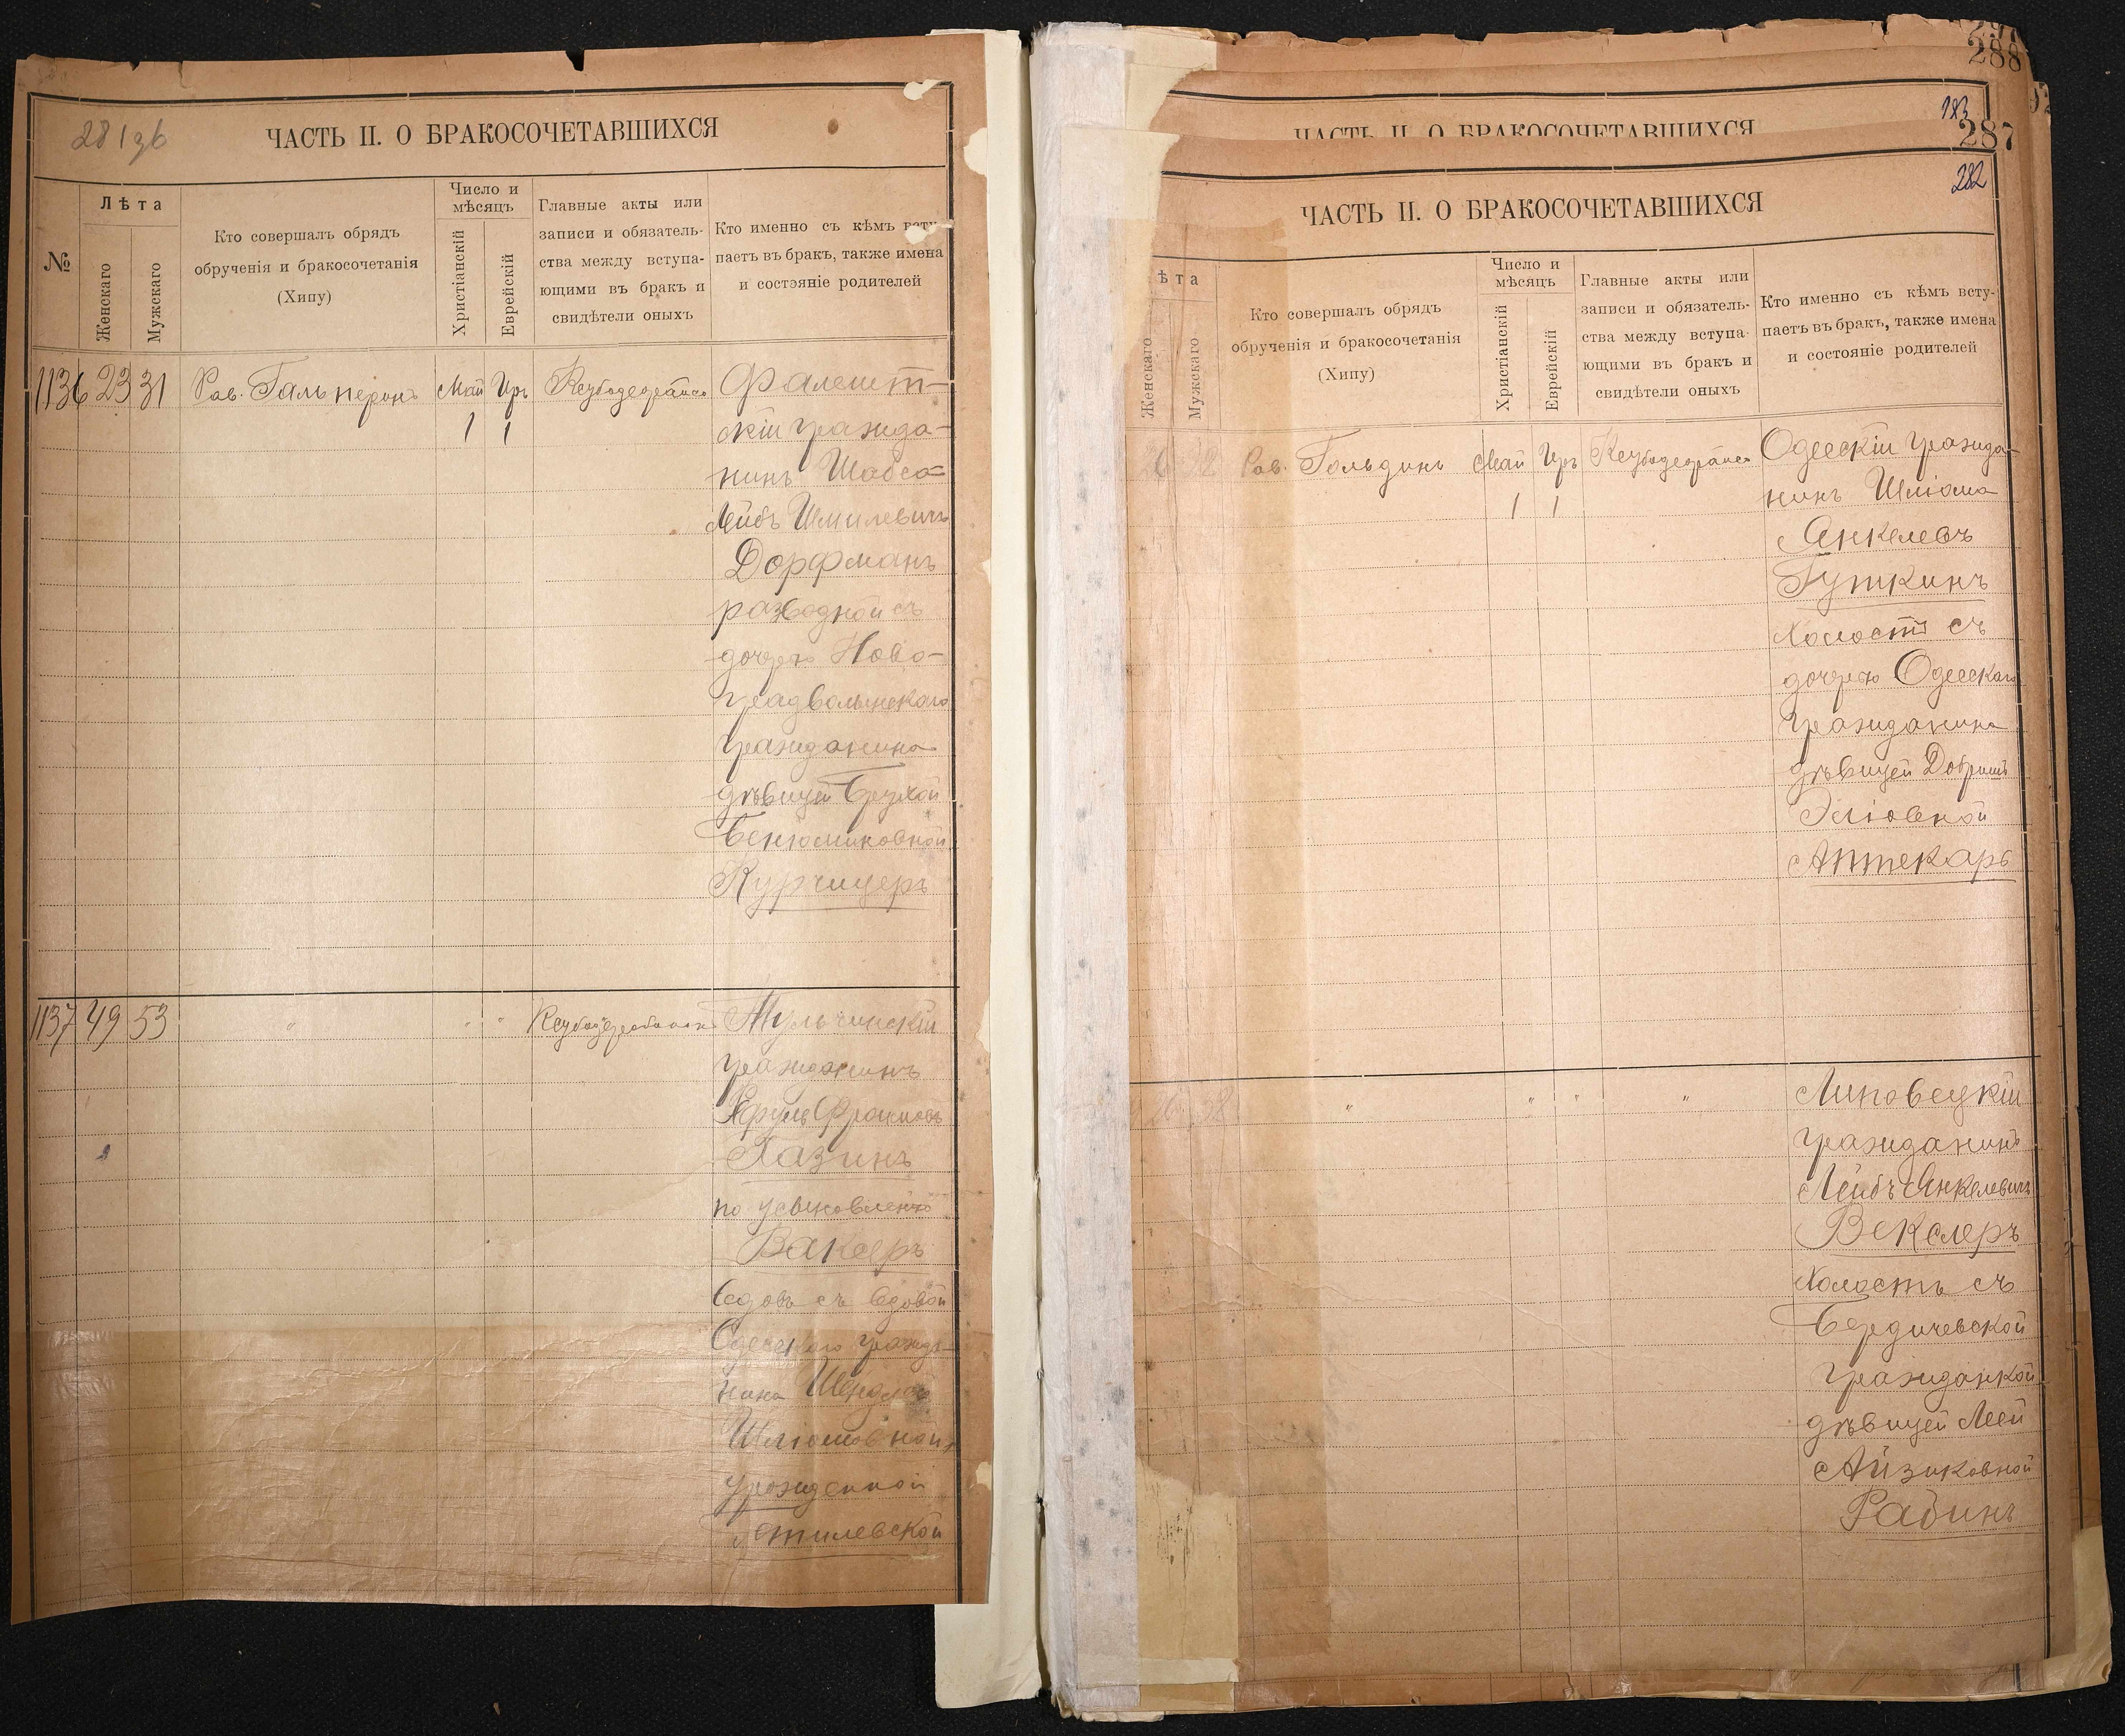 281 зв
ЧАСТЬ II. О БРАКОСОЧЕТАВШИХСЯ
№
Лѣта
Женскаго
Мужскаго
Кто совершалъ обрядъ
обрученія и бракосочетанія
(Хипу)
Число и
мѣсяцъ
Христіанскій
Еврейскій
Главные акты или
записи и обязатель-
ства между вступа-
ющими въ бракъ и
свидѣтели оныхъ
Кто именно съ кѣмъ всту-
паетъ въ бракъ, также имена
и состояніе родителей
1136 23 31 Рав. Гальперинъ Май Иръ
1 1
Фалешт-
скій гражда-
нинъ Шабса
Лейбъ Шмилевичъ
Дорфманъ
разводной съ
дочерью Ново-
градволынскаго
гражданина
дѣвицей Брухой
Бенюминовной
Курчицеръ
1137 49 53 " " "
Тульчинскій
гражданинъ
Хазинъ
по усыновленію
Ваксеръ
вдовъ съ вдовой
Одесскаго гражда-
нина
Шліомовной
урожденной
288
183
287
ЧАСТЬ II. О БРАКОСОЧЕТАВШИХСЯ
282
ЧАСТЬ II. О БРАКОСОЧЕТАВШИХСЯ
ѣта
Женскаго
Мужскаго
Кто совершалъ обрядъ
обрученія и бракосочетанія
(Хипу)
Число и
мѣсяцъ
Христіанскій
Еврейскій
Главные акты или
записи и обязатель-
ства между вступа-
ющими въ бракъ и
свидѣтели оныхъ
Кто именно съ кѣмъ всту-
паетъ въ бракъ, также имена
и состояніе родителей
Рав. Гольдинъ Май Иръ
1 1
Одесскій гражда-
нинъ Шліома
Янкелевъ
Гуткинъ
Холостъ съ
дочерью Одесскаго
гражданина
дѣвицей Добришъ
Эліовной
Аптекарь
" " " "
Липовецкій
гражданинъ
Лейбъ Янкелевичъ
Векслеръ
Холостъ съ
Бердичевской
гражданкой
дѣвицей Леей
Айзиковной
Рабинъ